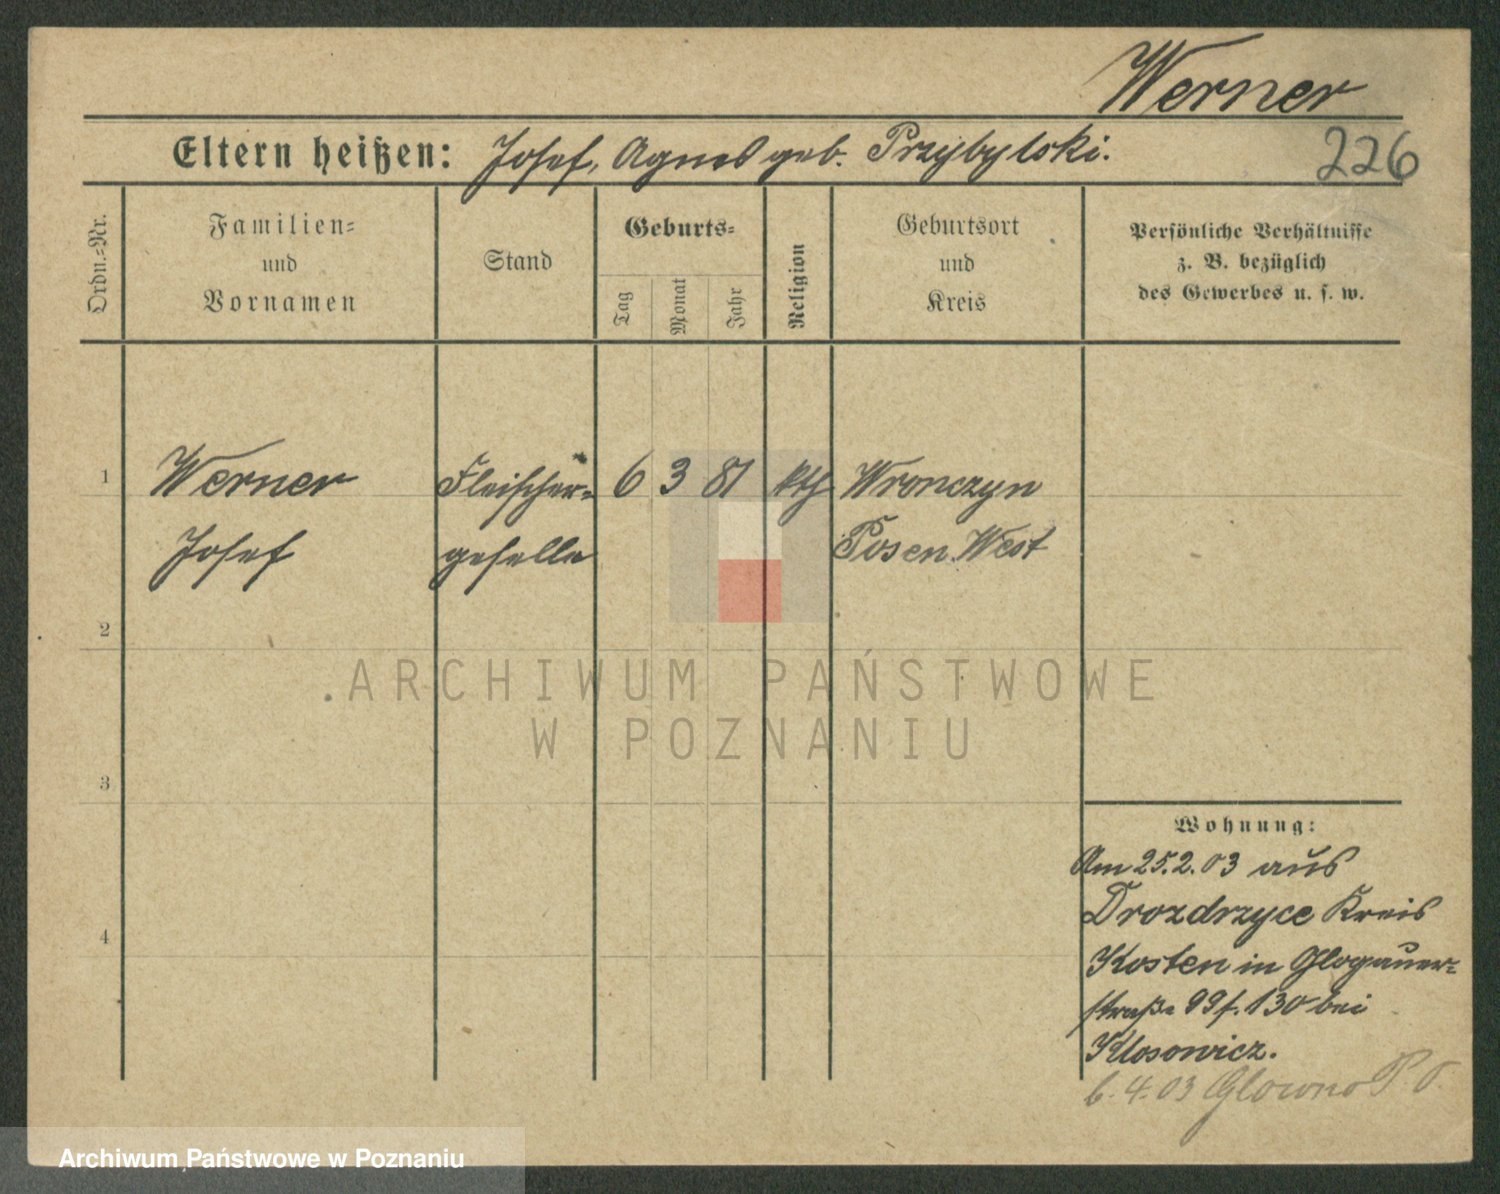 Werner
Eltern heißen: Josef, Agnes geb. Przybylski.
226
Ordn.-Nr.
Familien-
und
Vornamen
Stand
Geburts-
Tag
Monat
Jahr
Religion
Geburtsort
und
Kreis
Persönliche Verhältnisse
z. B. bezüglich
des Gewerbes u. s. w.
1 Werner Fleischer- 6 3 81 kth Wronczyn
Josef geselle Posen West
2
3
4
ARCHIWUM PAŃSTWOWE
W POZNANIU
Wohnung:
Am 25.2.03 aus
Drozdrzyce Kreis
Kosten in Glogauer-
straße 99 f. 130 bei
Klosowicz.
6.4.03 Glowno P. O.
Archiwum Państwowe w Poznaniu